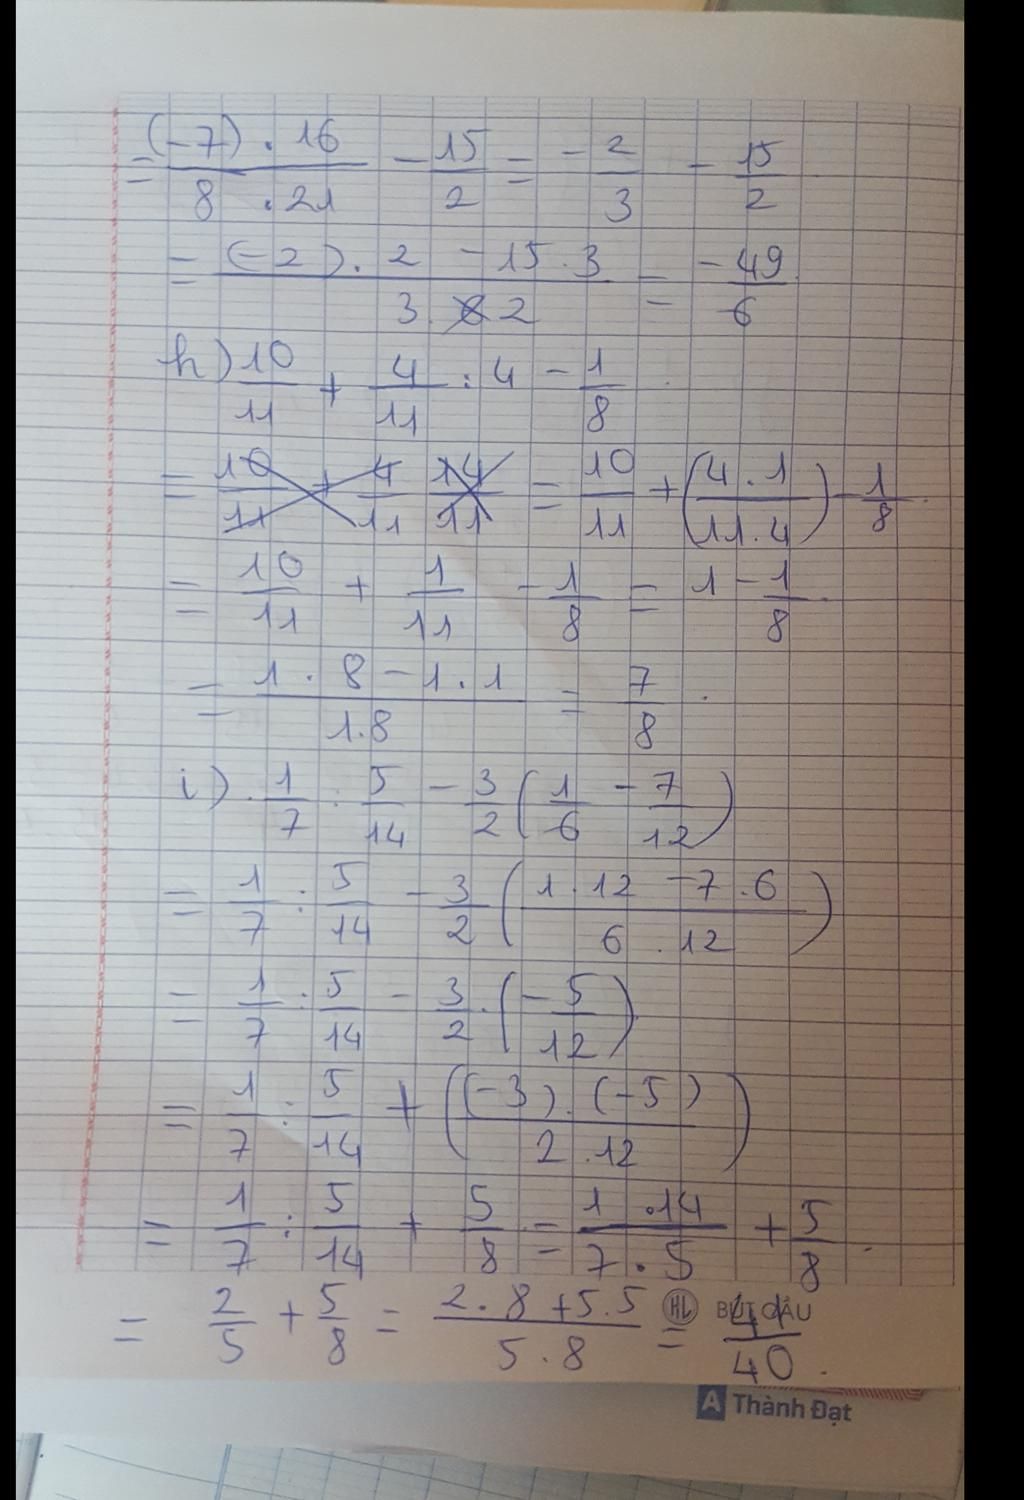 = ((-7) . 16)/(8 . 21) - 15/2 = - 2/3 - 15/2
= ((-2) . 2 - 15 . 3)/(3 . 2) = -49/6
h) 10/11 + 4/11 : 4 - 1/8
= 10/11 + 4/11 14/11 = 10/11 + ((4 . 1)/(11 . 4)) - 1/8
= 10/11 + 1/11 - 1/8 = 1 - 1/8
= (1 . 8 - 1 . 1)/(1.8) = 7/8 .
i) 1/7 : 5/14 - 3/2 (1/6 - 7/12)
= 1/7 : 5/14 - 3/2 ((1 . 12 - 7 . 6)/(6 . 12))
= 1/7 : 5/14 - 3/2 . (- 5/12)
= 1/7 : 5/14 + (((-3) . (-5))/(2 . 12))
= 1/7 : 5/14 + 5/8 = (1 . 14)/(7 . 5) + 5/8 .
= 2/5 + 5/8 = (2 . 8 + 5 . 5)/(5 . 8) = 41/40 .
HL BÚT CẦU
A Thành Đạt